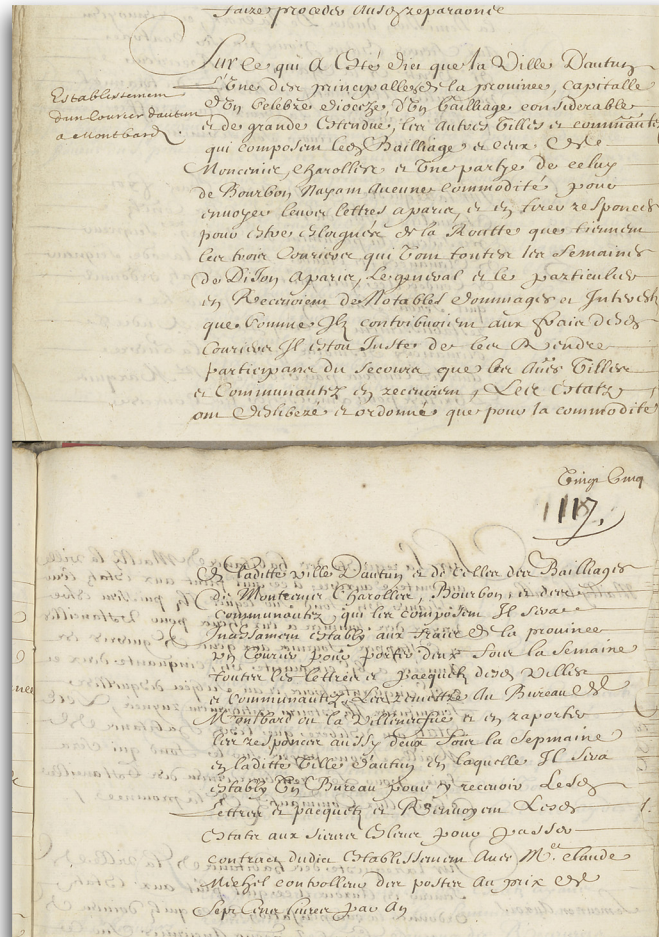 faire proceder auxd reparaōns
Sur ce qui a Esté dict que la Ville Dautun
Establissement
dun Courier dautun
a Montbard
L'une des principalles de la prouince, capitalle
d'un Celebre dioceze d'un bailliage considerable
et de grande Estendue, les autres Villes et commūautez
qui composent led Bailliage et ceux de
Moncenis, charolles et Une partye de celuy
de Bourbon Nayant Aucune commodité pour
enuoyer leurs lettres a paris, et en tirer responces
pour estre esloignés de la Routte que tiennent
les trois Couriers qui vont touttes les Semaines
de Dijon a paris, Le general et le particulier
en Recoiuent de Notables dommages et Interestz
que comme Ilz contribuoient aux fraix desd
Couriers Il estoit Juste de les Rendre
participans du Secours que les au͠es Villes
et Communautez en recoiuent, Lesd Estatz
ont desliberé et ordonné que pour la commodité
Vingt Cinq
1117
de laditte ville Dautun et de celles des Bailliages
de Montcenis Charolles, Bourbon, et des
Communautez qui les composent Il sera
Incessament estably aux fraix de la prouince
un Courier pour porter deux Jour la Semaine
touttes les lettres et pacquetz desd Villes
et Communautez, Les remettre au Bureau de
Montbard ou la Villeneufue et en raporter
les responces aussy deux Jour la Sepmaine
en laditte Ville d'autun en laquelle Il sera
estably Un Bureau pour y receuoir Lesd
Lettres et pacquetz et Renuoyent Lesd
Estatz aux sieurs Esleus pour passer
contract dudit Establissement Auec M.e claude
Michel controlleur des postes Au prix de
Sept Cent liures par An